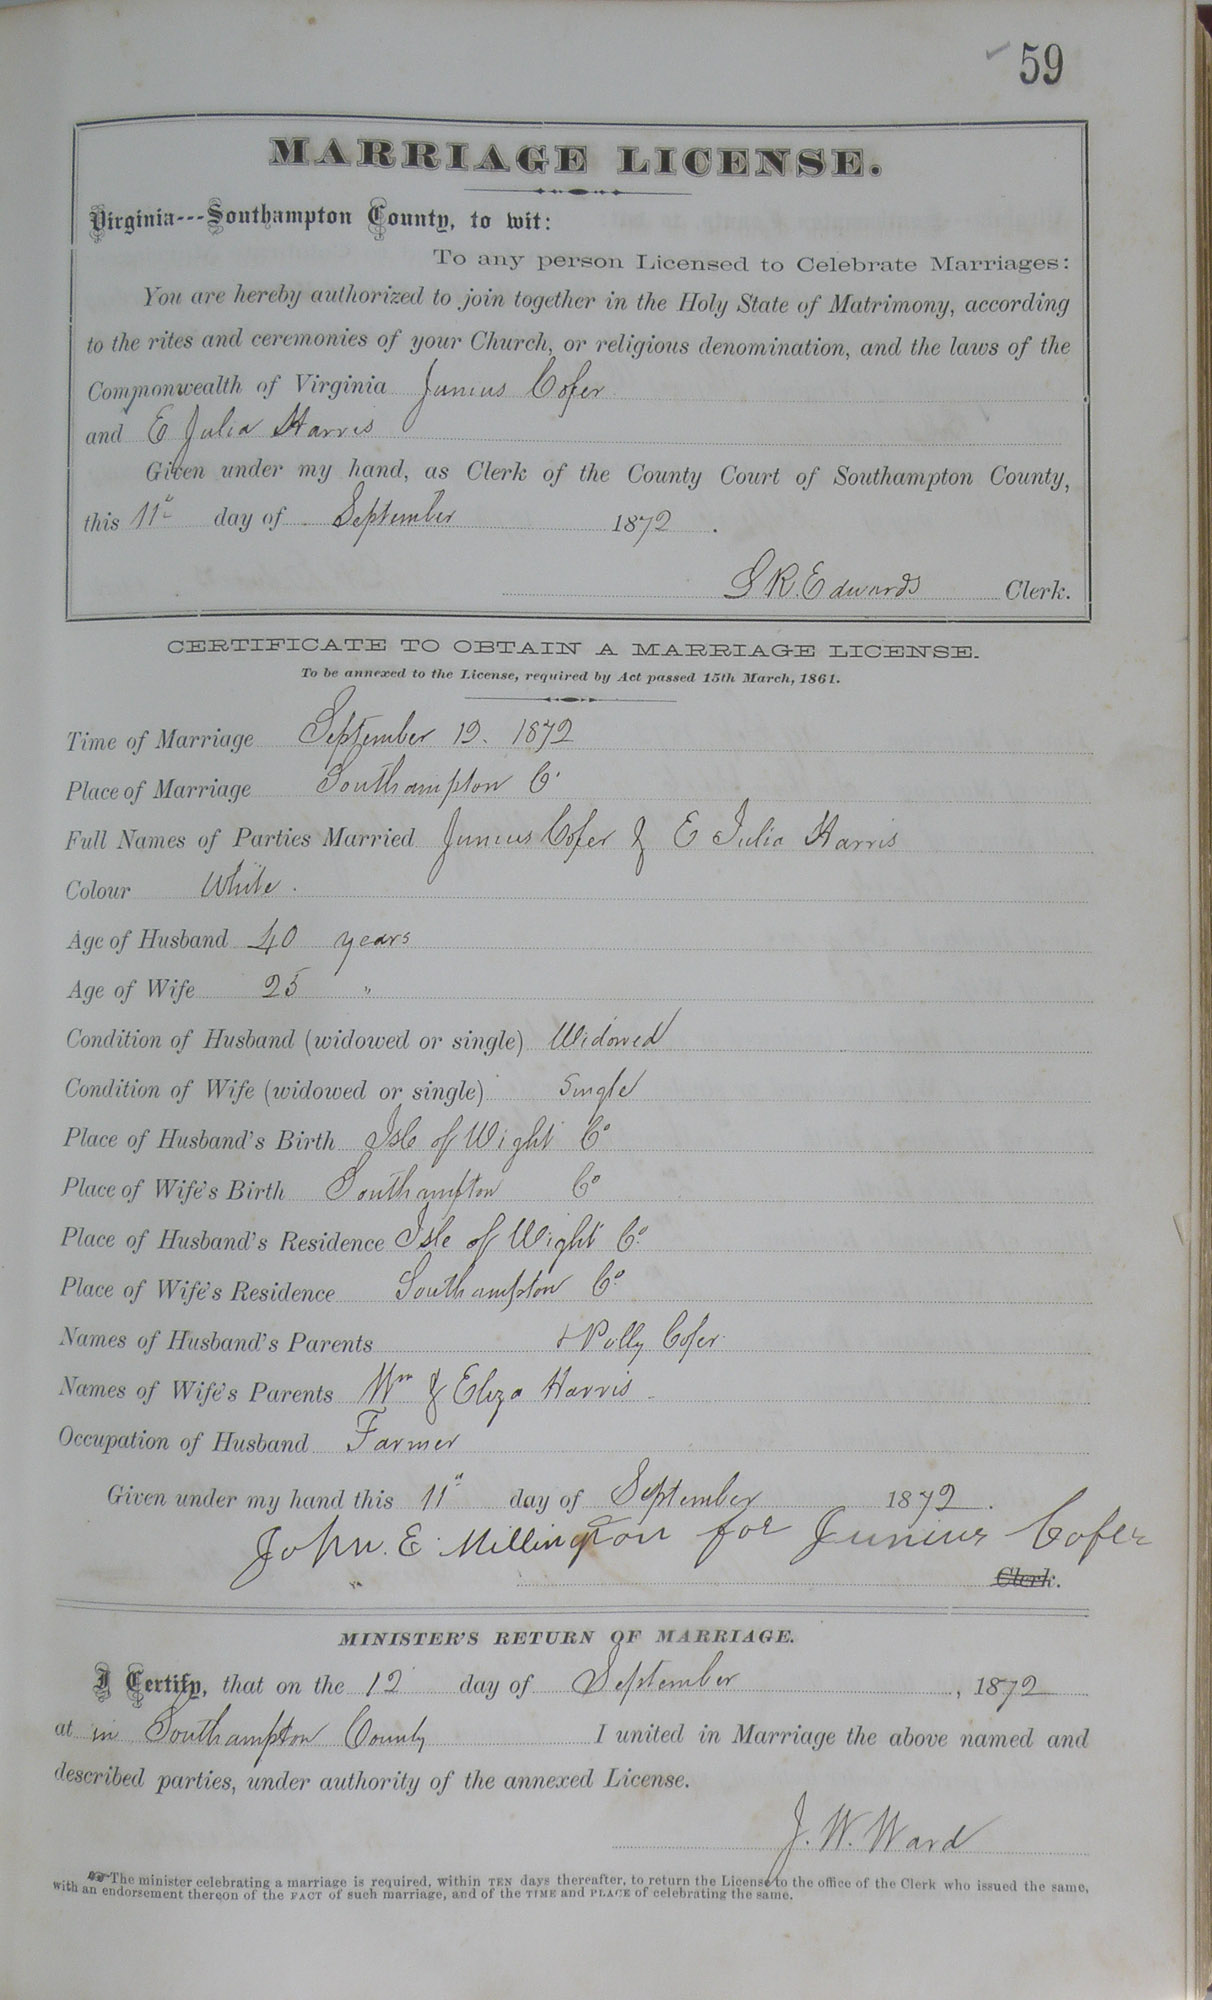 59
MARRIAGE LICENSE.
Virginia---Southampton County, to wit:
To any person Licensed to Celebrate Marriages:
You are hereby authorized to join together in the Holy State of Matrimony, according
to the rites and ceremonies of your Church, or religious denomination, and the laws of the
Commonwealth of Virginia Junius Cofer
and E Julia Harris
Given under my hand, as Clerk of the County Court of Southampton County,
this 11" day of September 1872.
L R. Edwards Clerk.
CERTIFICATE TO OBTAIN A MARRIAGE LICENSE.
To be annexed to the License, required by Act passed 15th March, 1861.
Time of Marriage September 12. 1872
Place of Marriage Southampton Co
Full Names of Parties Married Junius Cofer & E Julia Harris
Colour White.
Age of Husband 40 years
Age of Wife 25 "
Condition of Husband (widowed or single) Widowed
Condition of Wife (widowed or single) Single
Place of Husband's Birth Isle of Wight Co
Place of Wife's Birth Southampton Co
Place of Husband's Residence Isle of Wight Co.
Place of Wife's Residence Southampton Co
Names of Husband's Parents & Polly Cofer
Names of Wife's Parents Wm & Eliza Harris
Occupation of Husband Farmer
Given under my hand this 11" day of September 1872.
John. E. Millington for Junius Cofer
Clerk.
MINISTER'S RETURN OF MARRIAGE.
I Certify, that on the 12 day of September, 1872
at in Southampton County I united in Marriage the above named and
described parties, under authority of the annexed License.
J. W. Ward
☞ The minister celebrating a marriage is required, within TEN days thereafter, to return the License to the office of the Clerk who issued the same,
with an endorsement thereon of the FACT of such marriage, and of the TIME and PLACE of celebrating the same.